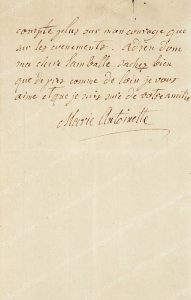 compte plus sur mon courage que
sur les evenements. adieu donc
ma chere lamballe sachez bien
que de pres comme de loin je vous
aime et que je suis sure de votre amitié
Marie Antoinette